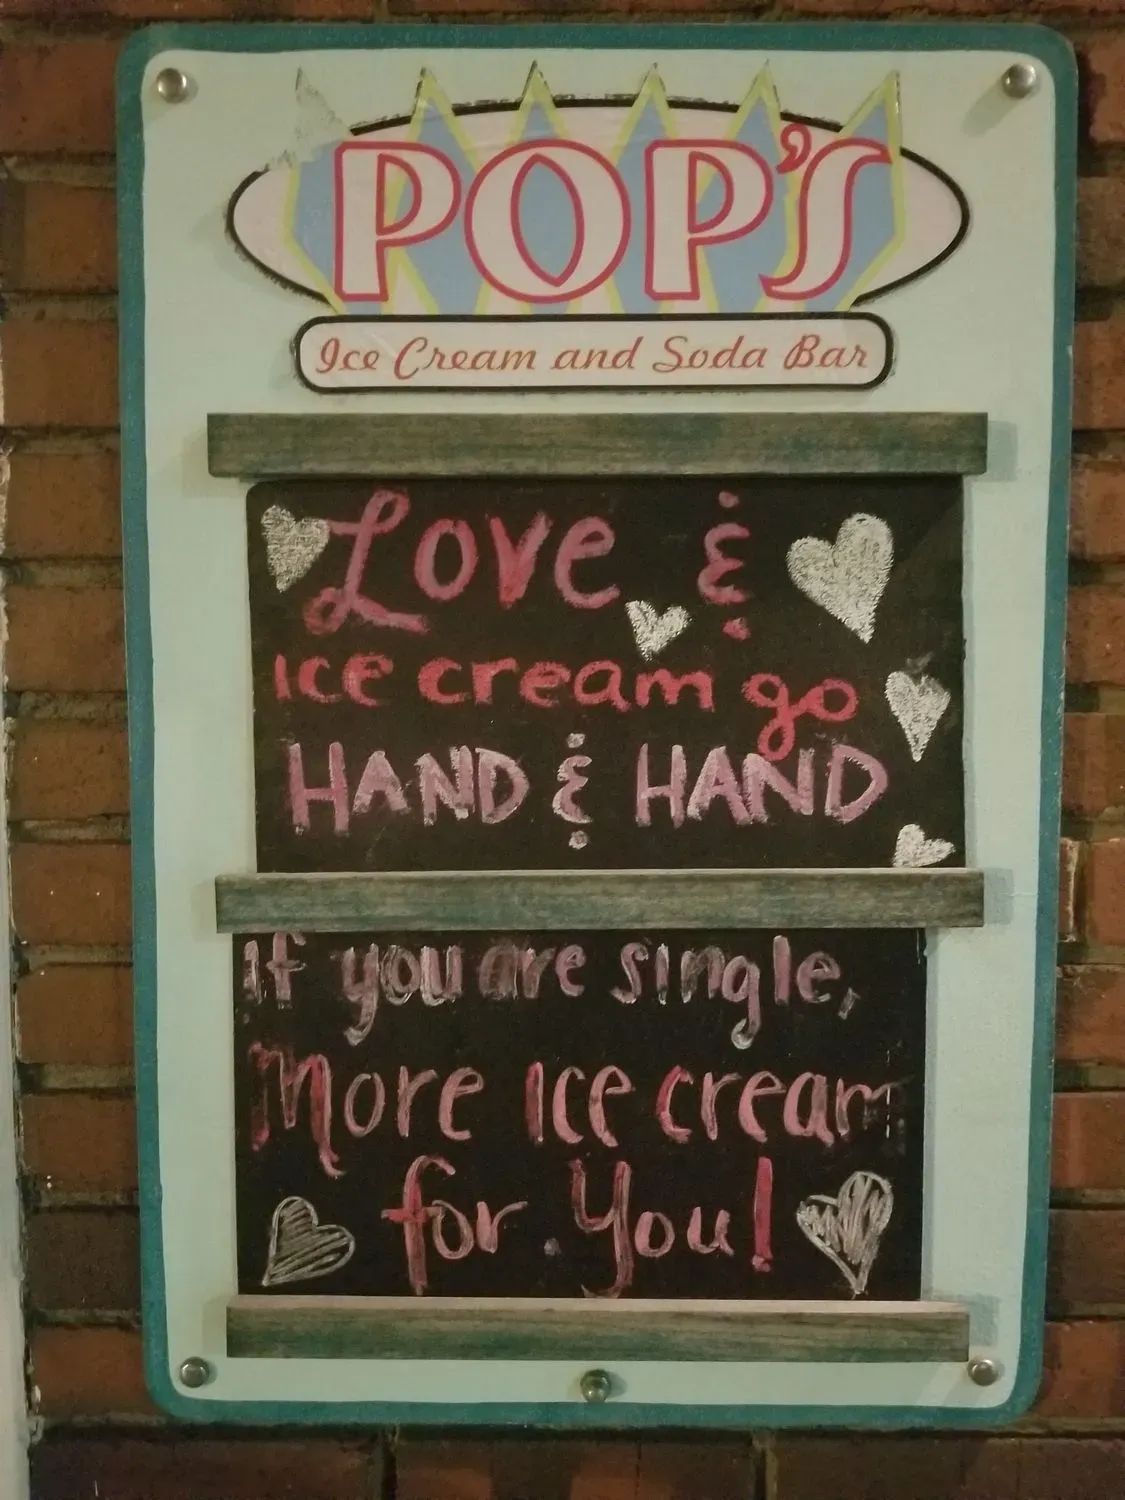 POP'S
Ice Cream and Soda Bar
Love &
ice cream go
HAND & HAND
If you are single,
More Ice cream
for You!